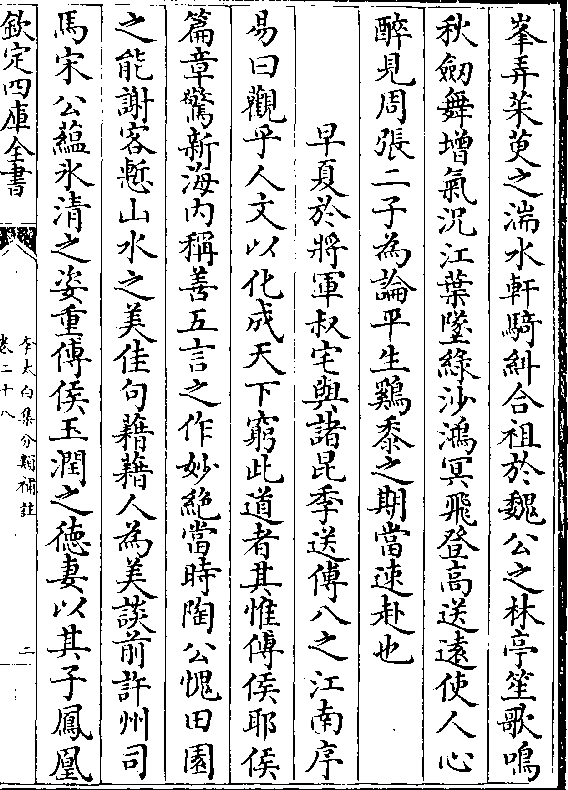 峯弄茱萸之湍水軒騎糾合祖於魏公之林亭笙歌鳴
秋劒舞增氣況江葉墜綠沙鴻冥飛登高送遠使人心
醉見周張二子為論平生鷄黍之期當速赴也
早夏於將軍叔宅與諸昆季送傅八之江南序
易曰觀乎人文以化成天下窮此道者其惟傅侯耶侯
篇章驚新海内稱善五言之作妙絶當時陶公愧田園
之能謝客慙山水之美佳句藉藉人為美談前許州司
馬宋公藴氷清之姿重傅侯玉潤之徳妻以其子鳳凰
欽定四庫全書
李太白集分類補註
卷二十八
二